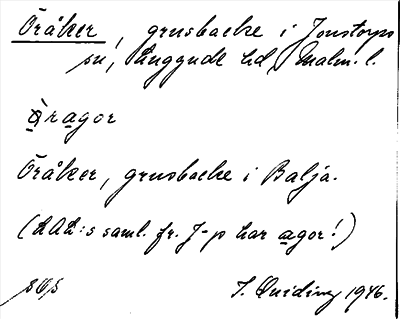 Öråker, grusbacke i Jonstorps
sn, Luggude hd, Malm. l.
Äragor
Öråker, grusbacke i Balja.
(LAL:s saml. fr. J-p har agor!)
J. Quiding 1946.